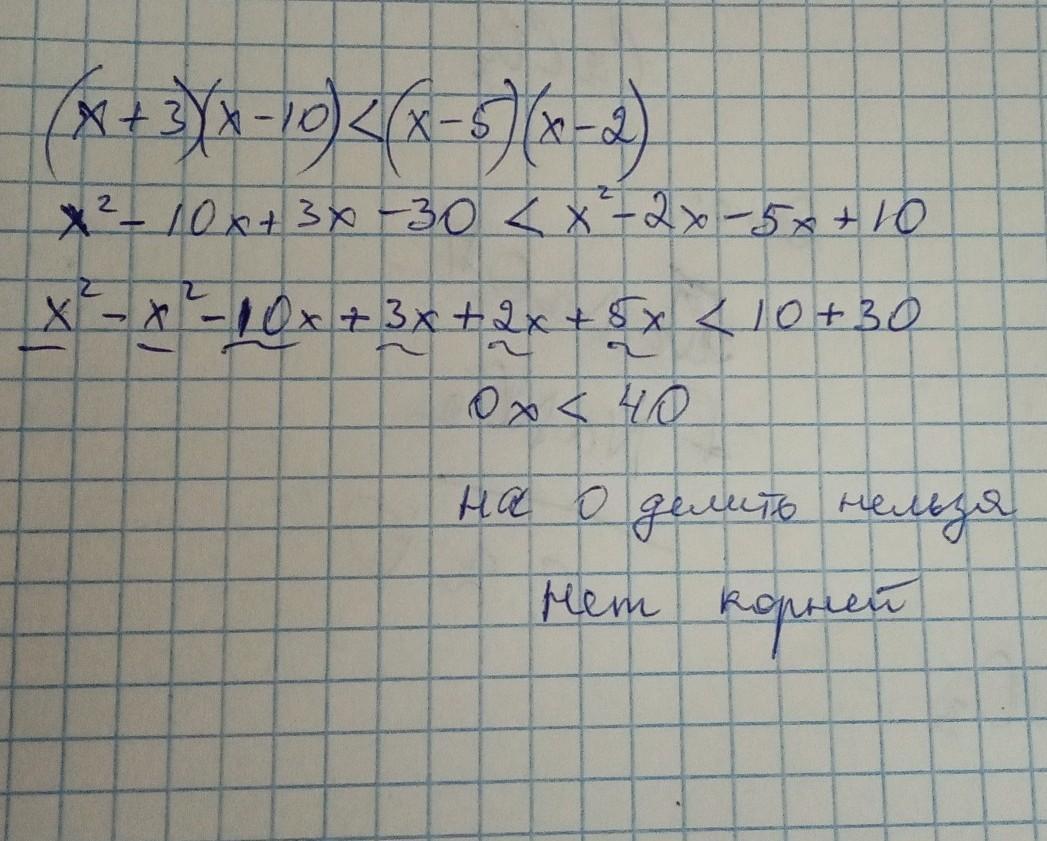 (x+3)(x-10)<(x-5)(x-2)
x²-10x+3x-30<x²-2x-5x+10
x²-x²-10x+3x+2x+5x<10+30
0x<40
на 0 делить нельзя
нет корней